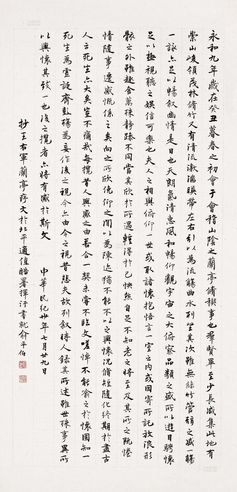 永和九年歲在癸丑暮春之初會于會稽山陰之蘭亭脩禊事也羣賢畢至少長咸集此地有
崇山峻領茂林脩竹又有清流激湍暎帶左右引以為流觴曲水列坐其次雖無絲竹管絃之盛一觴
一詠亦足以暢敘幽情是日也天朗氣清惠風和暢仰觀宇宙之大俯察品類之盛所以遊目騁懷
足以極視聽之娛信可樂也夫人之相與俯仰一世或取諸懷抱悟言一室之內或因寄所託放浪形
骸之外雖趣舍萬殊靜躁不同當其欣於所遇輕得於己快然自足不知老之將至及其所之既惓
情隨事遷感慨係之矣向之所欣俛仰之間以為陳迹猶不能不以之興懷況脩短隨化終期於盡古
人云死生亦大矣豈不痛哉每攬昔人興感之由若合一契未嘗不臨文嗟悼不能喻之於懷固知一
死生為虛誕齊彭殤為妄作後之視今亦由今之視昔悲夫故列敘時人錄其所述雖世殊事異所
以興懷其致一也後之攬者亦將有感於斯文 中華民紀年七月廿九日
抄王右軍蘭亭序文於北平適值酷暑揮汗書就俞平伯